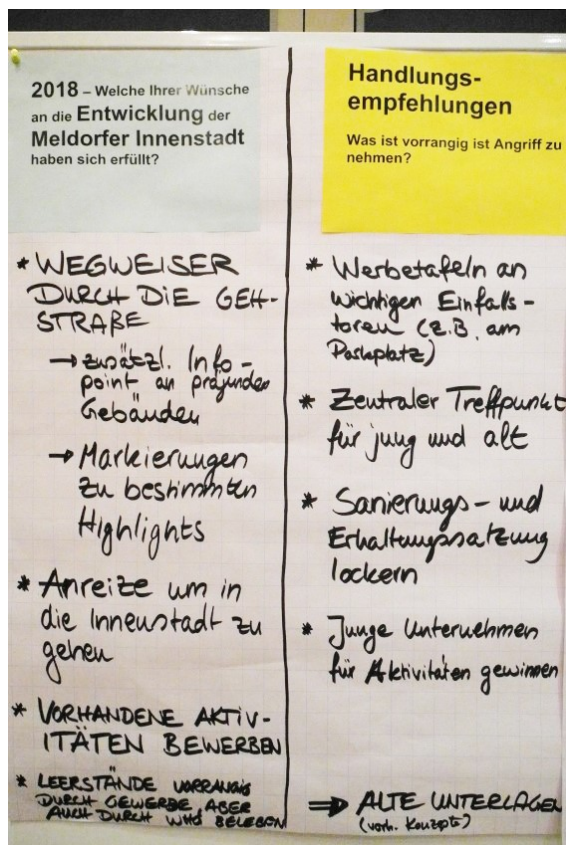 2018 – Welche Ihrer Wünsche
an die Entwicklung der
Meldorfer Innenstadt
haben sich erfüllt?
* WEGWEISER
DURCH DIE GEH-
STRAßE
→ zusätzl. Info-
point an prägenden
Gebäuden
→ Markierungen
zu bestimmten
Highlights
* Anreize um in
die Innenstadt zu
gehen
* VORHANDENE AKTIV-
ITÄTEN BEWERBEN
* LEERSTÄNDE VORRANGIG
DURCH GEWERBE, ABER
AUCH DURCH WHG BELEBEN
Handlungs-
empfehlungen
Was ist vorrangig ist Angriff zu
nehmen?
* Werbetafeln an
wichtigen Einfalls-
toren (z.B. am
Parkplatz)
* Zentraler Treffpunkt
für jung und alt
* Sanierungs- und
Erhaltungssatzung
lockern
* Junge Unternehmen
für Aktivitäten gewinnen
⇒ ALTE UNTERLAGEN
(vorh. Konzepte)